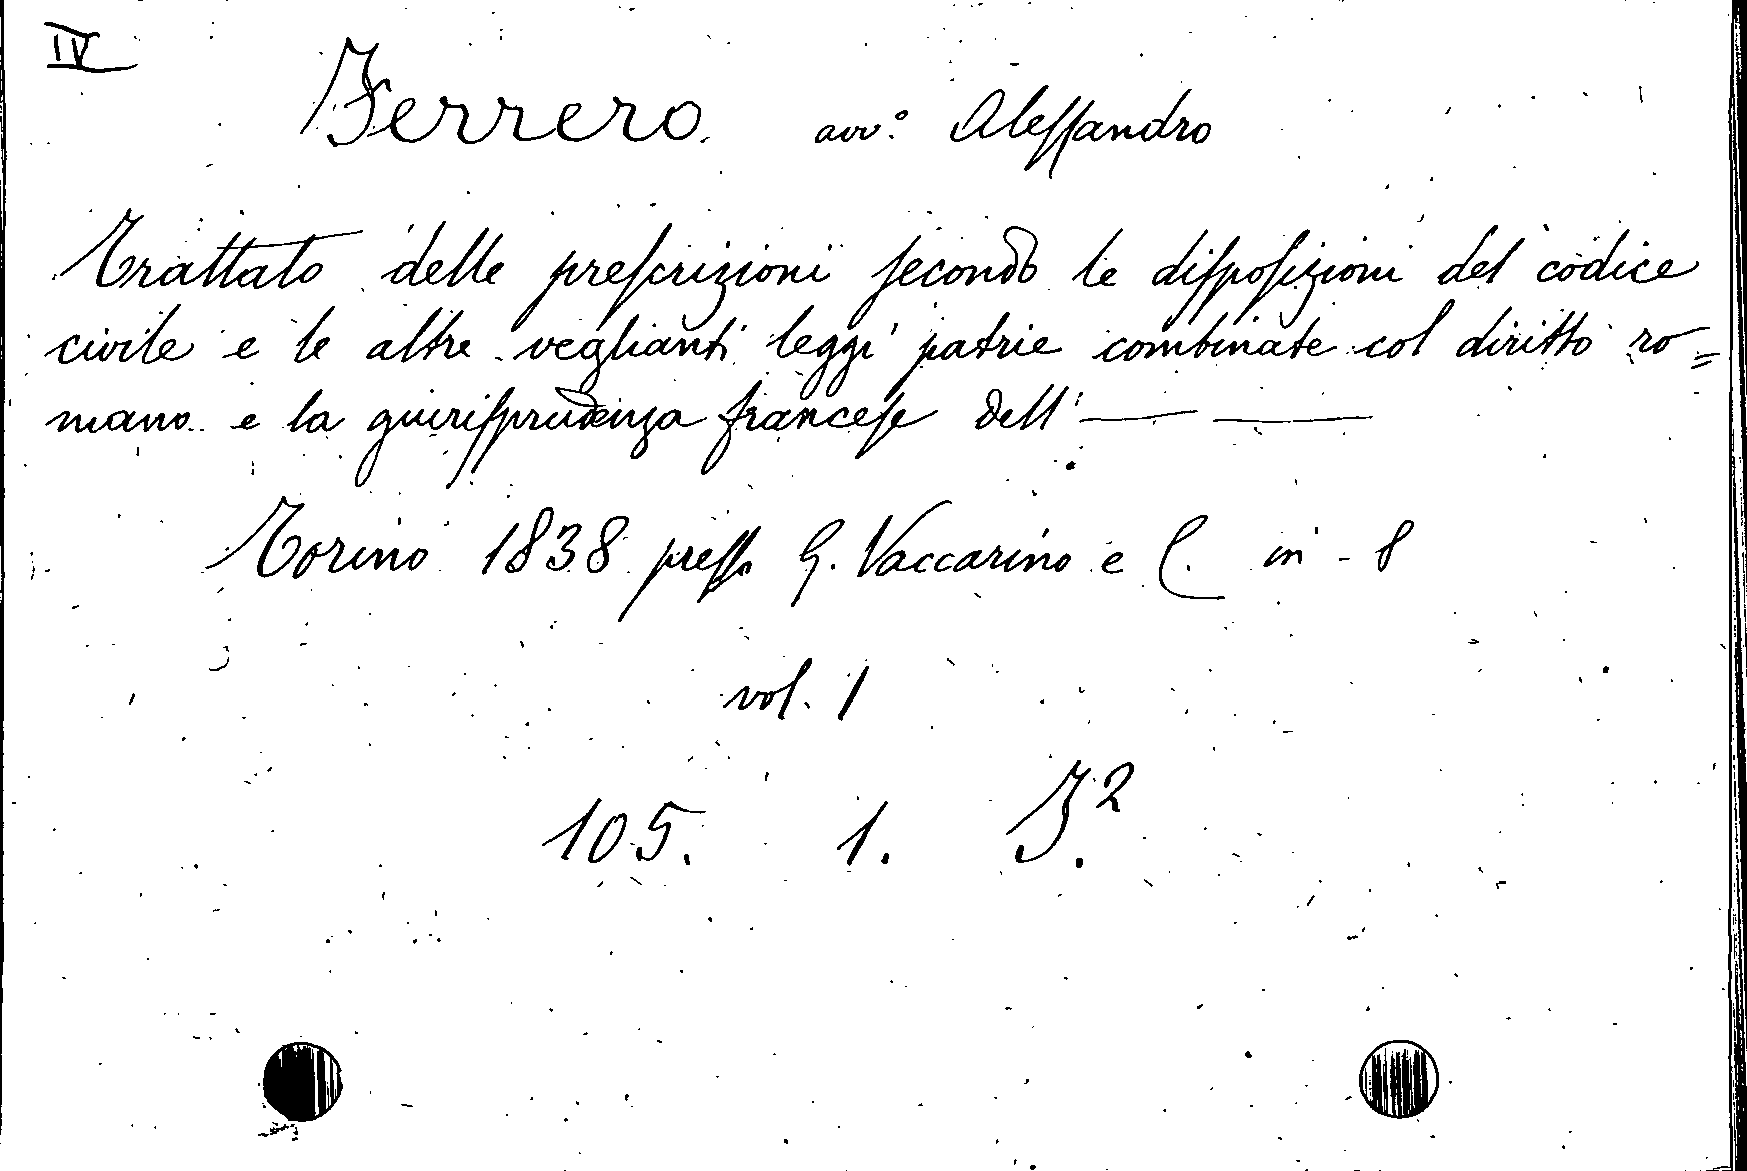 IV
Ferrero. avv.º Alessandro
Trattato delle prescrizioni secondo le disposizioni del codice
civile e le altre veglianti leggi patrie combinate col diritto ro=
mano e la giurisprudenza francese dell' — —
Torino 1838 presso G. Vaccarino e C. in - 8
vol. 1
105. 1. I.²